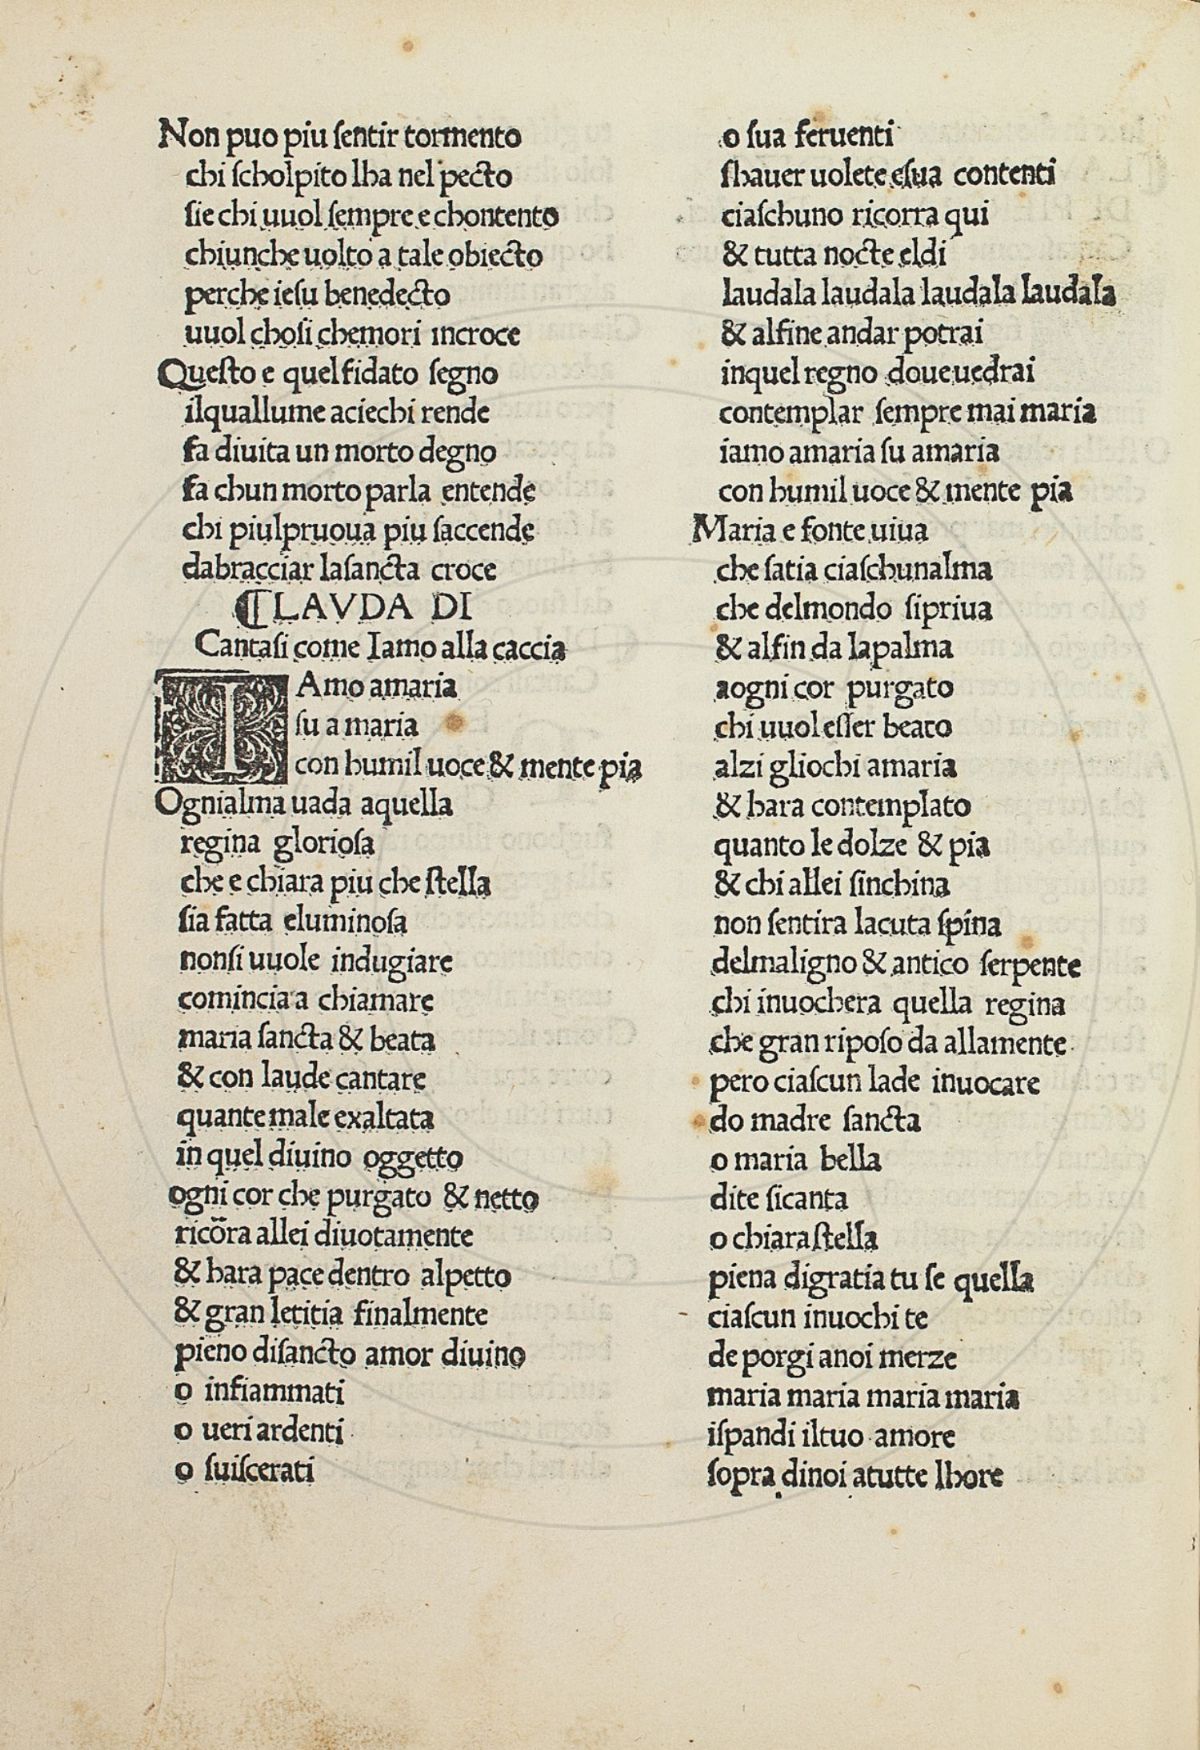 Non puo piu ſentir tormento
chi ſcholpito lha nel pecto
ſie chi uuol ſempre e chontento
chiunche uolto a tale obiecto
perche ieſu benedecto
uuol choſi chemori incroce
Queſto e quel fidato ſegno
ilqual lume aciechi rende
fa diuita un morto degno
fa chun morto parla entende
chi piulpruoua piu ſaccende
dabracciar laſancta croce
¶ LAVDA DI
Cantaſi come Iamo alla caccia
IAmo amaria
ſu a maria
con humil uoce & mente pia
Ognialma uada aquella
regina glorioſa
che e chiara piu che ſtella
ſia fatta eluminoſa
nonſi uuole indugiare
comincia a chiamare
maria ſancta & beata
& con laude cantare
quantemale exaltata
in quel diuino oggetto
ogni cor che purgato & netto
ricōra allei diuotamente
& hara pace dentro alpetto
& gran letitia finalmente
pieno diſancto amor diuino
o infiammati
o ueri ardenti
o ſuiſcerati
o ſua feruenti
ſhauer uolete eſua contenti
ciaſchuno ricorra qui
& tutta nocte eldi
laudala laudala laudala laudala
& alfine andar potrai
inquel regno doueuedrai
contemplar ſempre mai maria
iamo amaria ſu amaria
con humil uoce & mente pia
Maria e fonte uiua
che ſatia ciaſchunalma
che delmondo ſipriua
& alfin da lapalma
aogni cor purgato
chi uuol eſſer beato
alzi gliochi amaria
& hara contemplato
quanto le dolze & pia
& chi allei ſinchina
non ſentira lacuta ſpina
delmaligno & antico ſerpente
chi inuochera quella regina
che gran ripoſo da allamente
pero ciaſcun lade inuocare
do madre ſancta
o maria bella
dite ſicanta
o chiara ſtella
piena digratia tu ſe quella
ciaſcun inuochi te
de porgi anoi merze
maria maria maria maria
iſpandi iltuo amore
ſopra dinoi atutte lhore